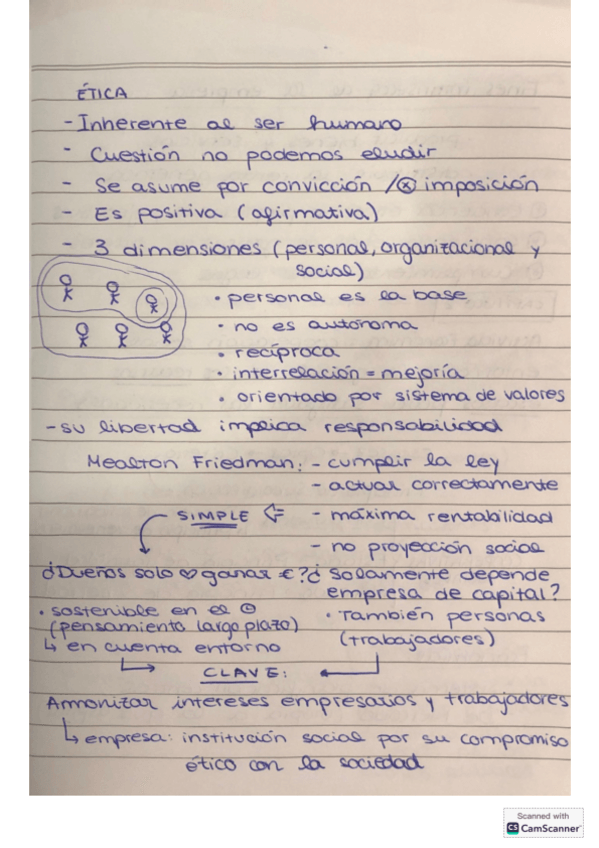 ÉTICA
- Inherente al ser humano
- Cuestión no podemos eludir
- Se asume por convicción / ⓧ imposición
- Es positiva (afirmativa)
- 3 dimensiones (personal, organizacional y
social)
• personal es la base
• no es autónoma
• recíproca
• interrelación = mejoría
• orientado por sistema de valores
- su libertad implica responsabilidad
Mealton Friedman: - cumplir la ley
- actuar correctamente
SIMPLE ⇐ - máxima rentabilidad
- no proyección social
¿Dueños solo ♡ ganar €? ¿Solamente depende
empresa de capital?
• sostenible en el
(pensamiento largo plazo)
↳ en cuenta entorno
• También personas
(trabajadores)
CLAVE:
Armonizar intereses empresarios y trabajadores
↳ empresa: institución social por su compromiso
ético con la sociedad
Scanned with
CS CamScanner